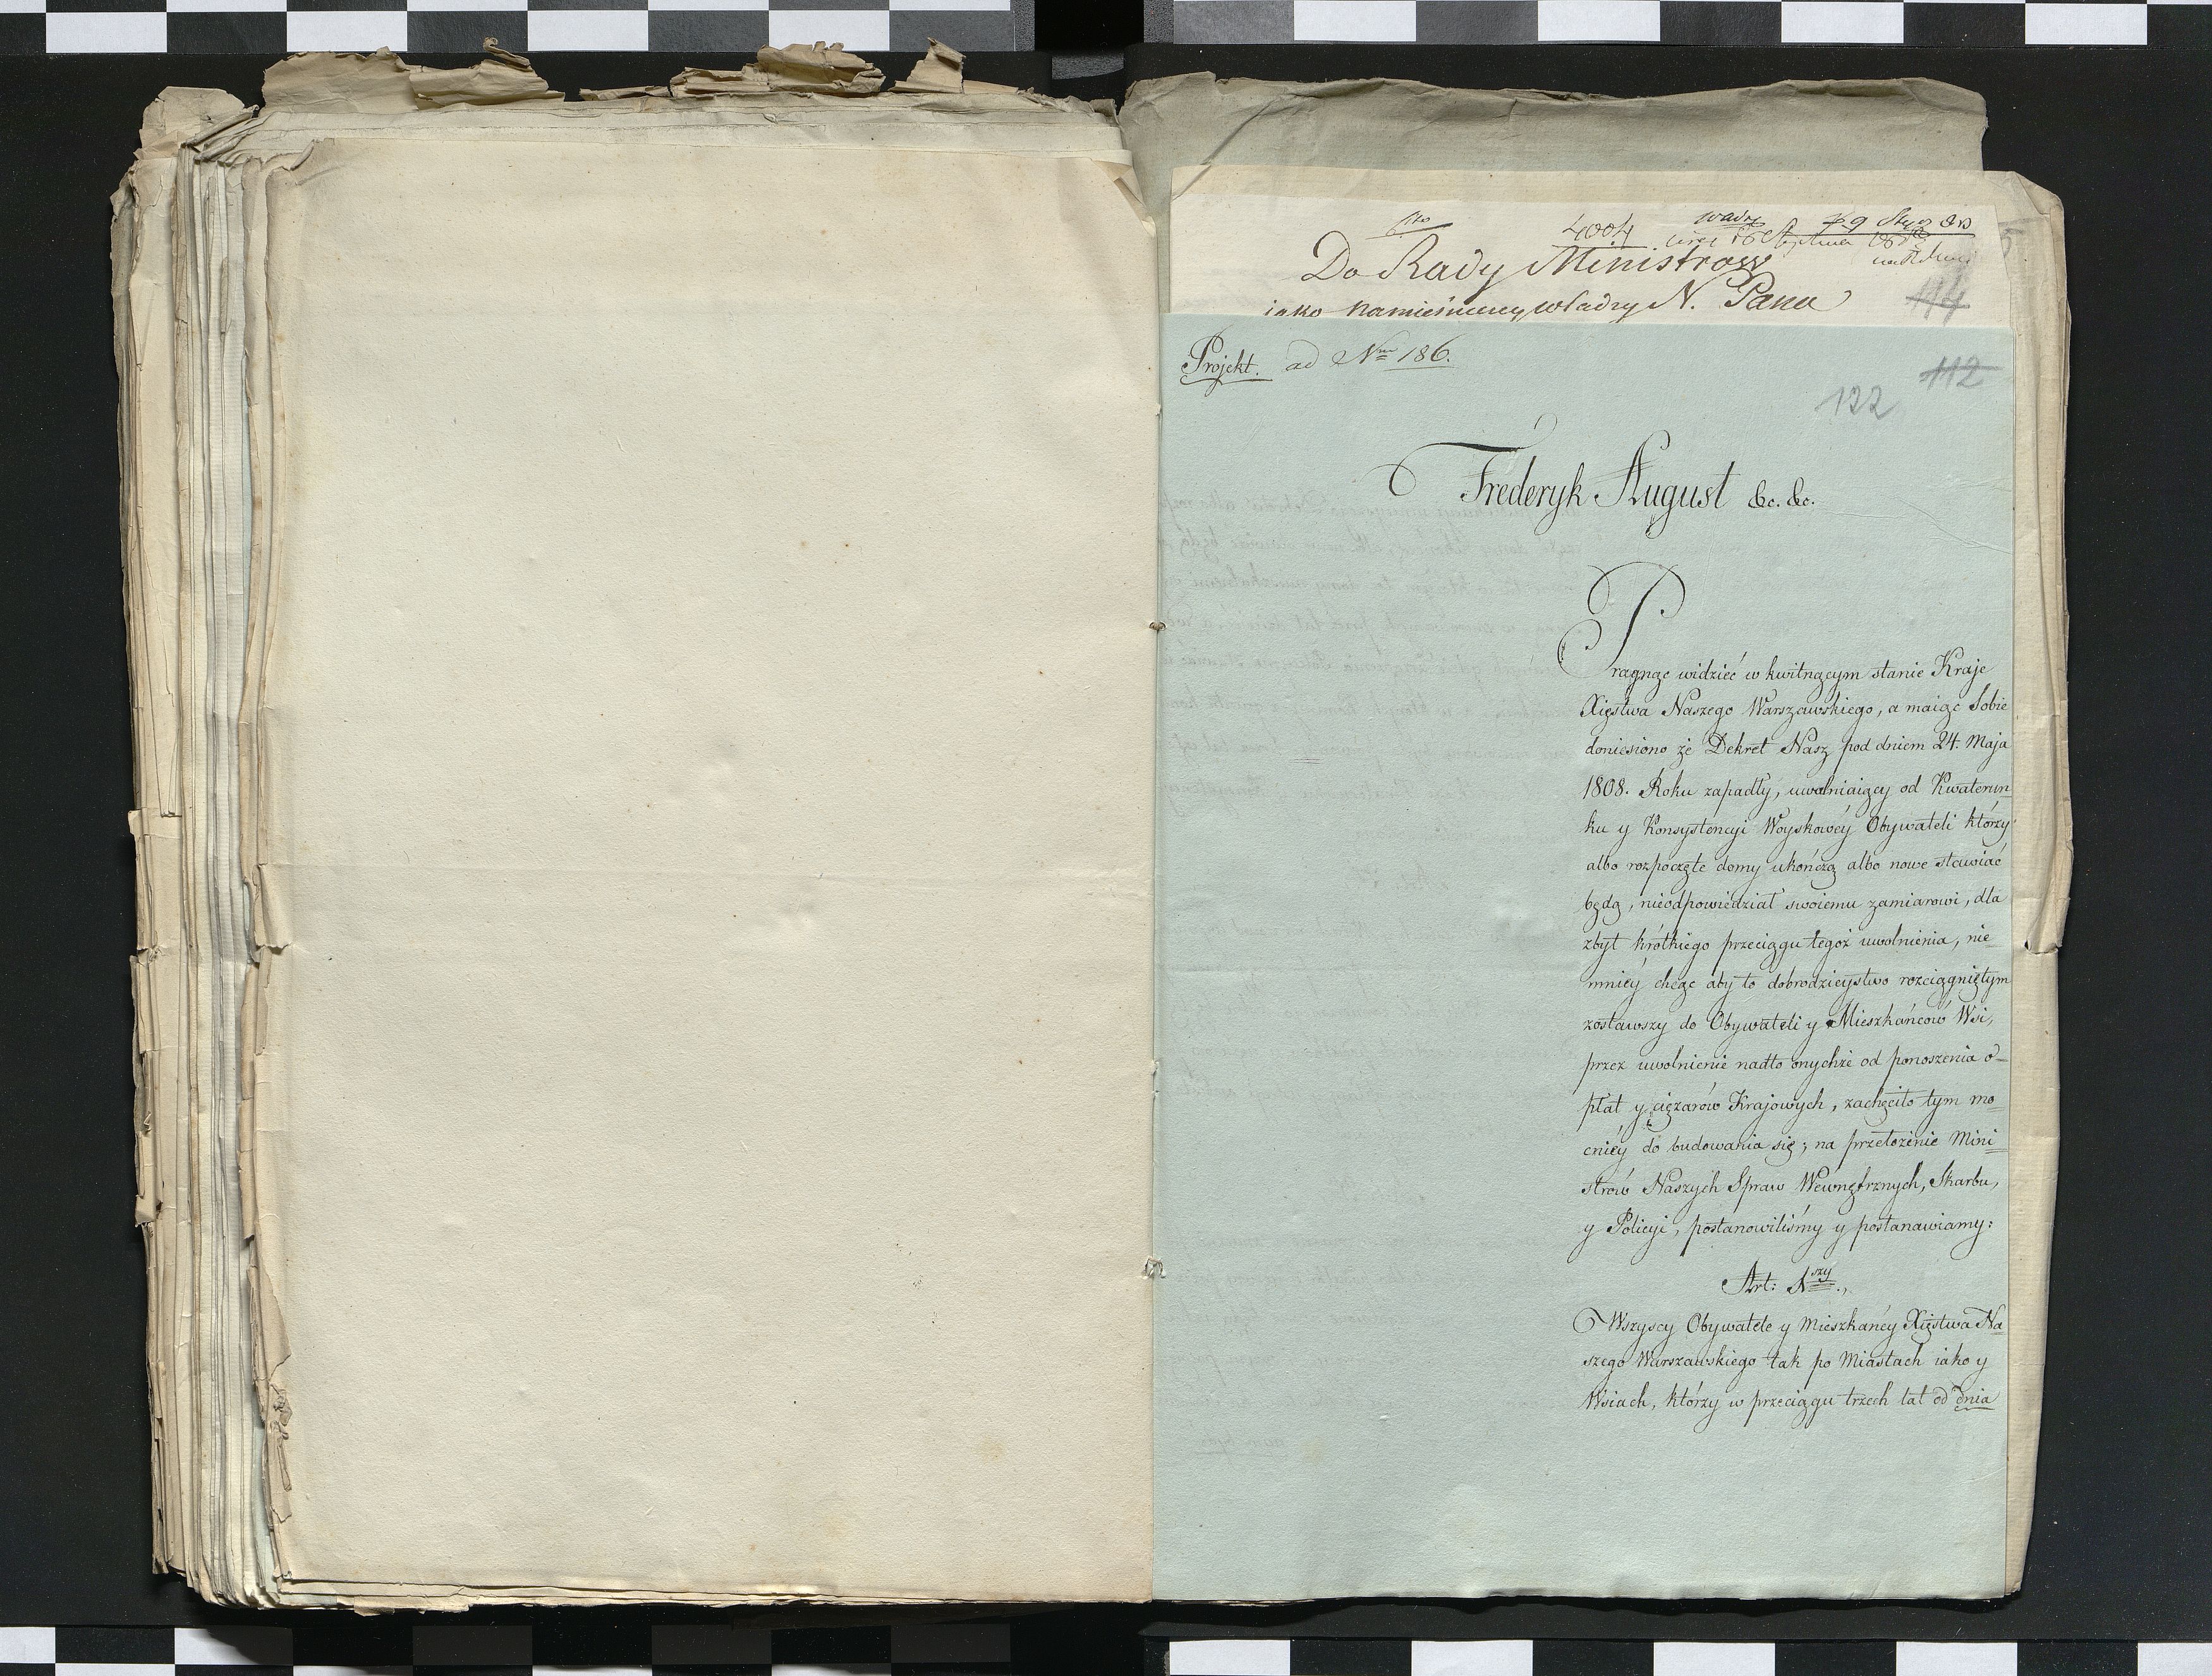 4004
Do Rady Ministrow
iako namiesniczey władzy N. Pana
114
Projekt. ad Nrum 186.
112
122
Frederyk August &c. &c.
Pragnąc widzieć w kwitnącym stanie Kraje
Xięstwa Naszego Warszawskiego, a maiąc Sobie
doniesiono że Dekret Nasz pod dniem 24. Maja
1808. Roku zapadły, uwalniaiący od Kwaterun=
ku y Konsystencyi Woyskowéy Obywateli którzy
albo rozpoczęte domy ukończą albo nowe stawiać
będą, nieodpowiedział swoiemu zamiarowi, dla
zbyt krótkiego przeciągu tegoż uwolnienia, nie=
mniéy chcąc aby to dobrodzieystwo rozciągniętym
zostawszy do Obywateli y Mieszkańców Wsi,
przez uwolnienie nadto onychże od ponoszenia o=
płat y ciężarów Krajowych, zachęciło tym mo=
cniéy do budowania się; na przełożenie Mini=
strów Naszych Spraw Wewnętrznych, Skarbu,
y Policyi, postanowiliśmy y postanawiamy:
Art: 1szy.,
Wszyscy Obywatele y Mieszkańcy Xięstwa Na=
szego Warszawskiego tak po Miastach iako y
Wsiach, którzy w przeciągu trzech lat od dnia